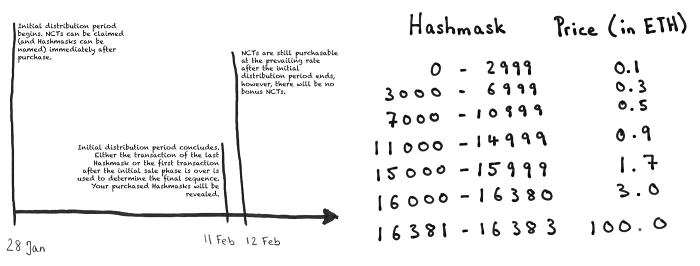 Initial distribution period
begins. NCTs can be claimed
(and Hashmasks can be
named) immediately after
purchase.
NCTs are still purchasable
at the prevailing rate
after the initial
distribution period ends,
however, there will be no
bonus NCTs.
Initial distribution period concludes.
Either the transaction of the last
Hashmask or the first transaction
after the initial sale phase is over is
used to determine the final sequence.
Your purchased Hashmasks will be
revealed.
28 Jan
11 Feb
12 Feb
Hashmask Price (in ETH)
0 - 2999 0.1
3000 - 6999 0.3
7000 - 10999 0.5
11000 - 14999 0.9
15000 - 15999 1.7
16000 - 16380 3.0
16381 - 16383 100.0